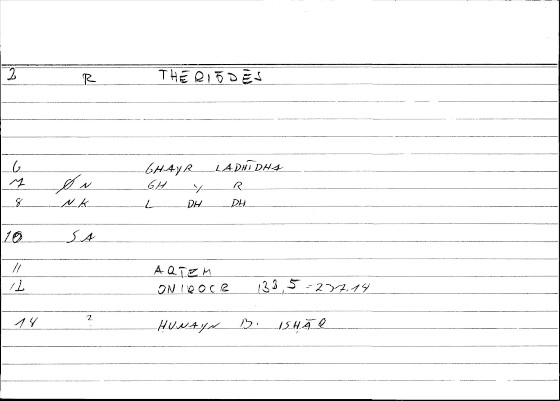 2 R THERIŌDĒS
6 GHAYR LADHĪDHA
7 ØN GH Y R
8 NK L DH DH
10 SA
11 ARTEM
12 ONIROCR 138,5 = 277.14
14 ? HUNAYN B. ISHĀQ